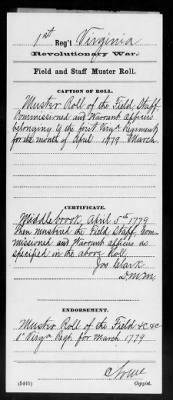 1st Reg't Virginia
Revolutionary War.
Field and Staff Muster Roll.
CAPTION OF ROLL.
Muster Roll of the Field, Staff
Commissioned and Warrant officers
belonging to the first Virga Regiment
for the month of April 1779 March.
CERTIFICATE.
Middlebrook, April 5th 1779
Then mustered the Field, Staff, Com-
missioned and Warrant officers as
specified in the above Roll.
Jos Clark
D.M.M.
ENDORSEMENT.
Muster Roll of the Field &c &c
1st Virga Regt for March 1779
(545b) Copyist.